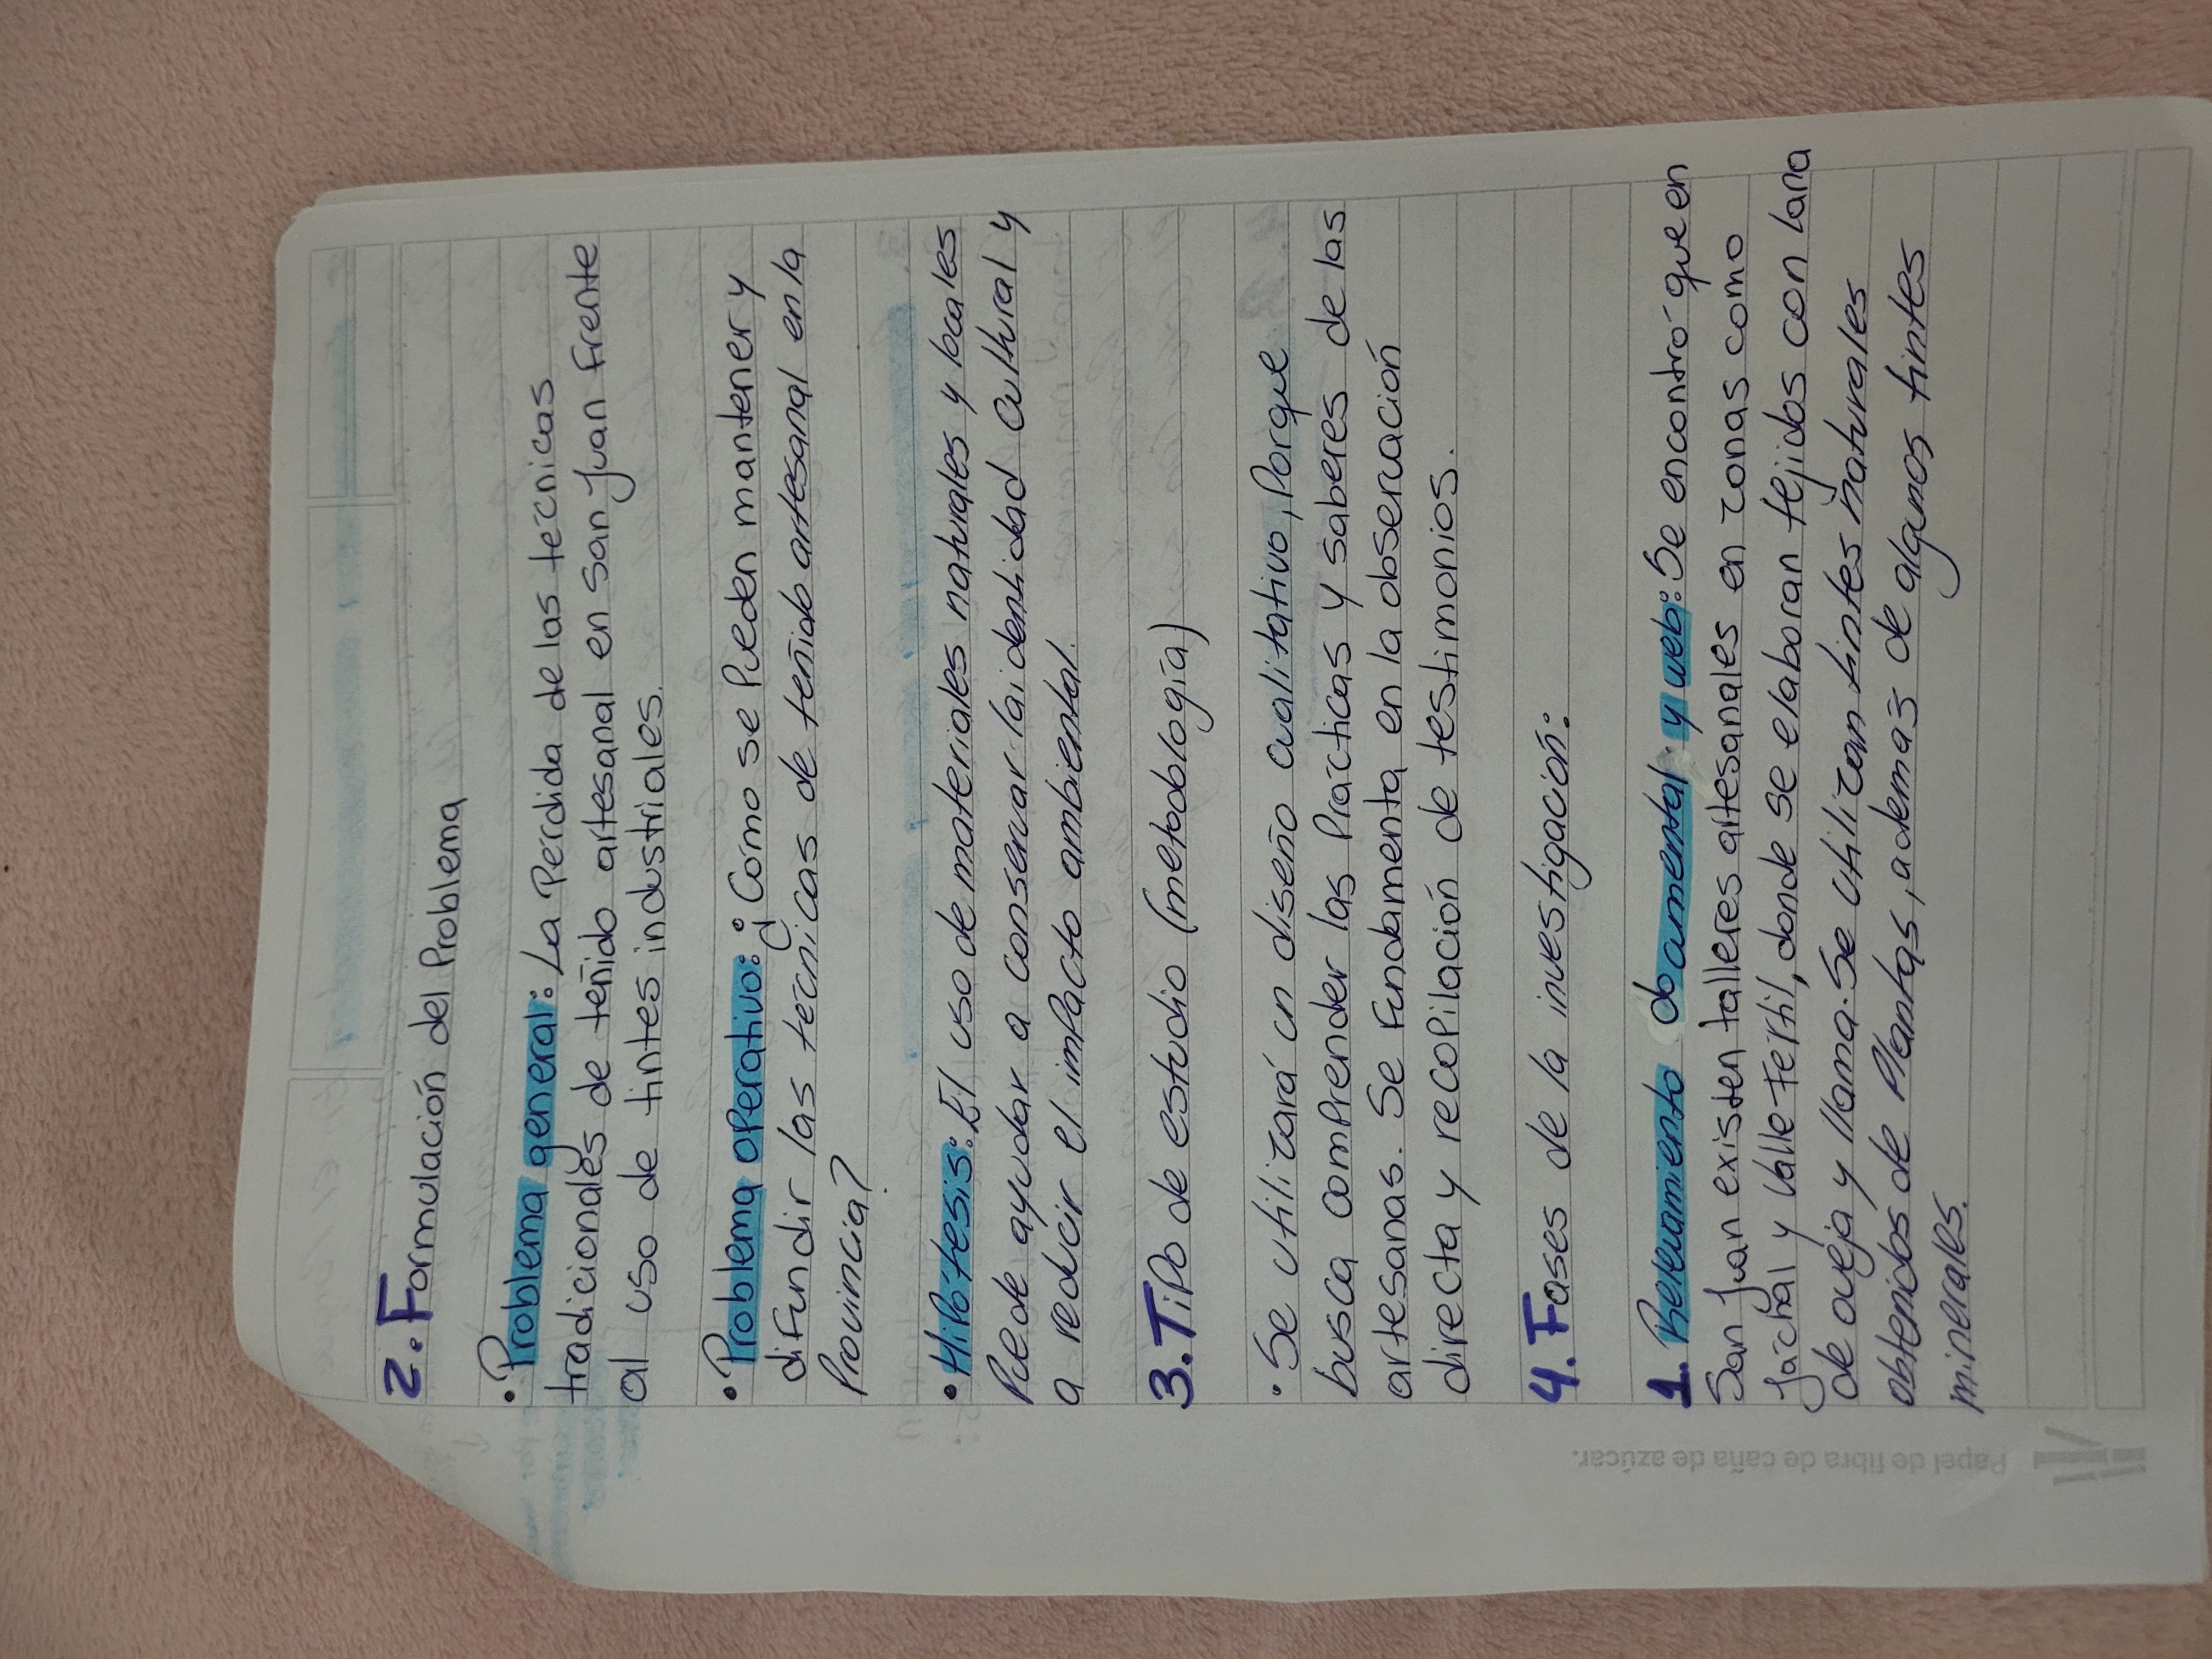 2. Formulación del Problema
• Problema general: La Perdida de las tecnicas
tradicionales de teñido artesanal en San Juan frente
al uso de tintes industriales.
• Problema operativo: ¿Cómo se Pueden mantener y
difundir las técnicas de teñido artesanal en la
Provincia?
• Hipótesis: El uso de materiales naturales y locales
Puede ayudar a conservar la identidad cultural y
a reducir el impacto ambiental.
3. Tipo de estudio (metodología)
• Se utilizará un diseño cualitativo, Porque
busca comprender las Prácticas y saberes de las
artesanas. Se Fundamenta en la observación
directa y recopilación de testimonios.
4. Fases de la investigación:
1. Relevamiento documental y web: Se encontró que en
San Juan existen talleres artesanales en zonas como
Jáchal y Valle Fértil, donde se elaboran tejidos con lana
de oveja y llama. Se utilizan tintes naturales
obtenidos de Plantas, además de algunos tintes
minerales.
Papel de fibra de caña de azúcar.